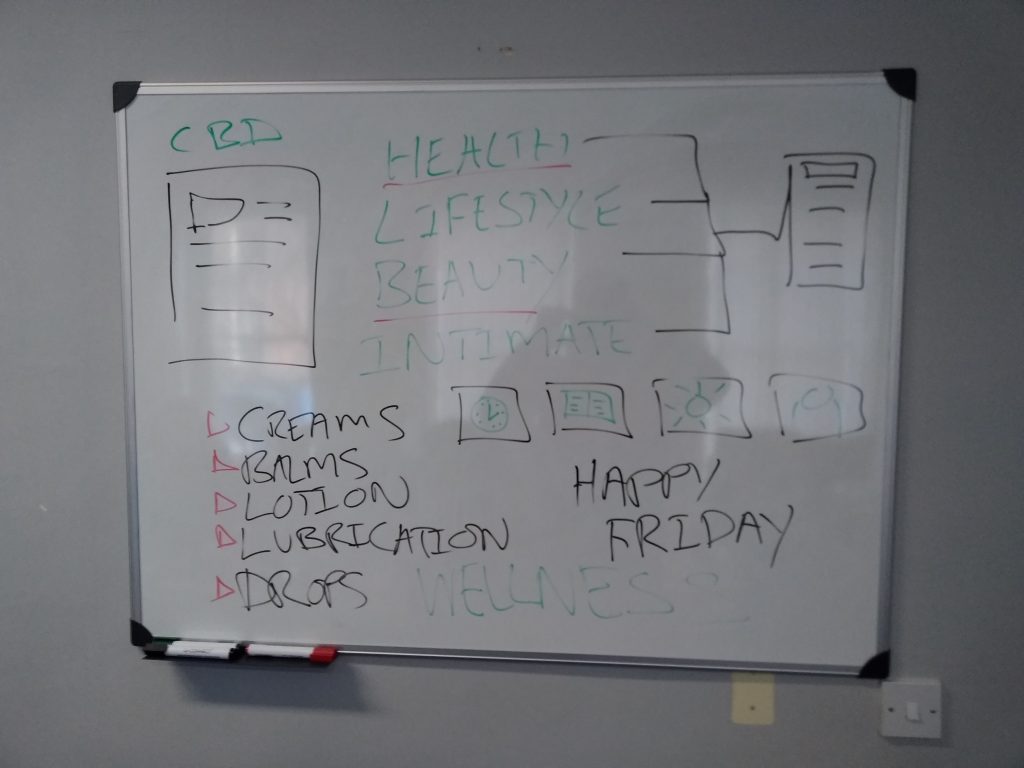 CBD
HEALTH
LIFESTYLE
BEAUTY
INTIMATE
CREAMS
BALMS
LOTION
LUBRICATION
DROPS
HAPPY
FRIDAY
WELLNESS